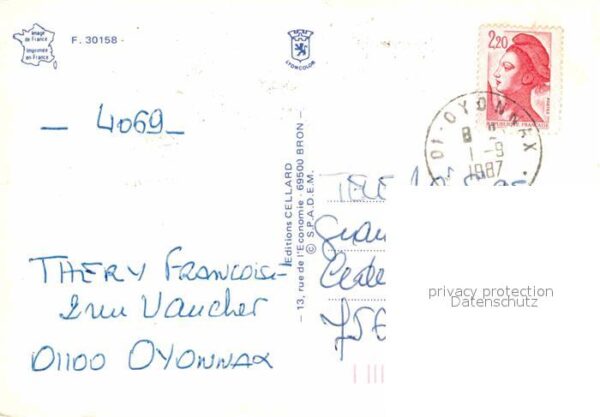 image
de France
imprimée
en France
F. 30158 -
LYONCOLOR
2,20
REPUBLIQUE FRANÇAISE
01 - OYONNAX
1 - 9
1987
- 4069 -
THERY Francoise
2 rue Vaucher
01100 OYONNAX
Editions CELLARD
- 13, rue de l'Economie - 69500 BRON -
© S.P.A.D.E.M.
privacy protection
Datenschutz